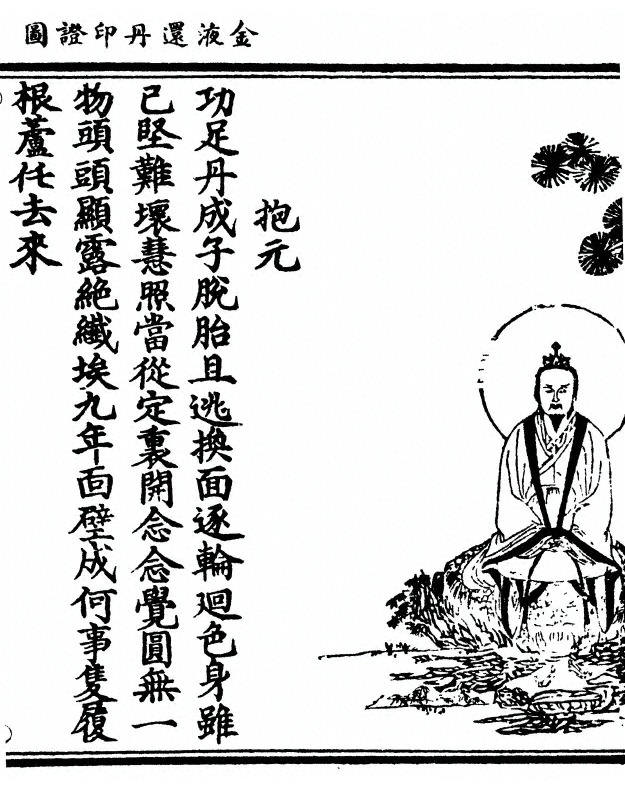 金液還丹印證圖
抱元
功足丹成子脫胎且逃換面逐輪迴色身雖
已堅難壞慧照當從定裏開念念覺圓無一
物頭頭顯露絶纖埃九年面壁成何事隻履
根蘆任去來